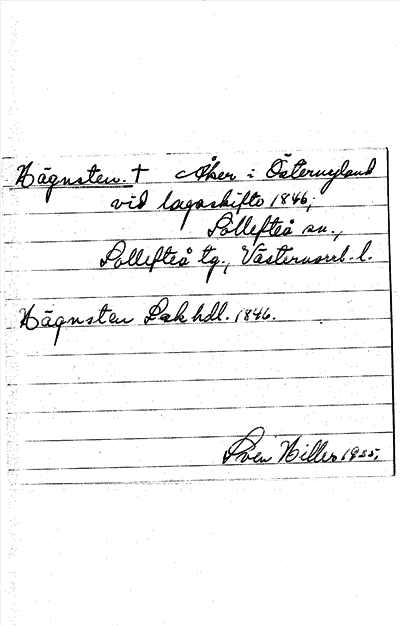 Hägnsten. † Åker i Östernyland
vid lagaskifte 1846,
Sollefteå sn.,
Sollefteå tg., Västernorrl. l.
Hägnsten Lsk hdl. 1846.
Sven Hiller 1935.